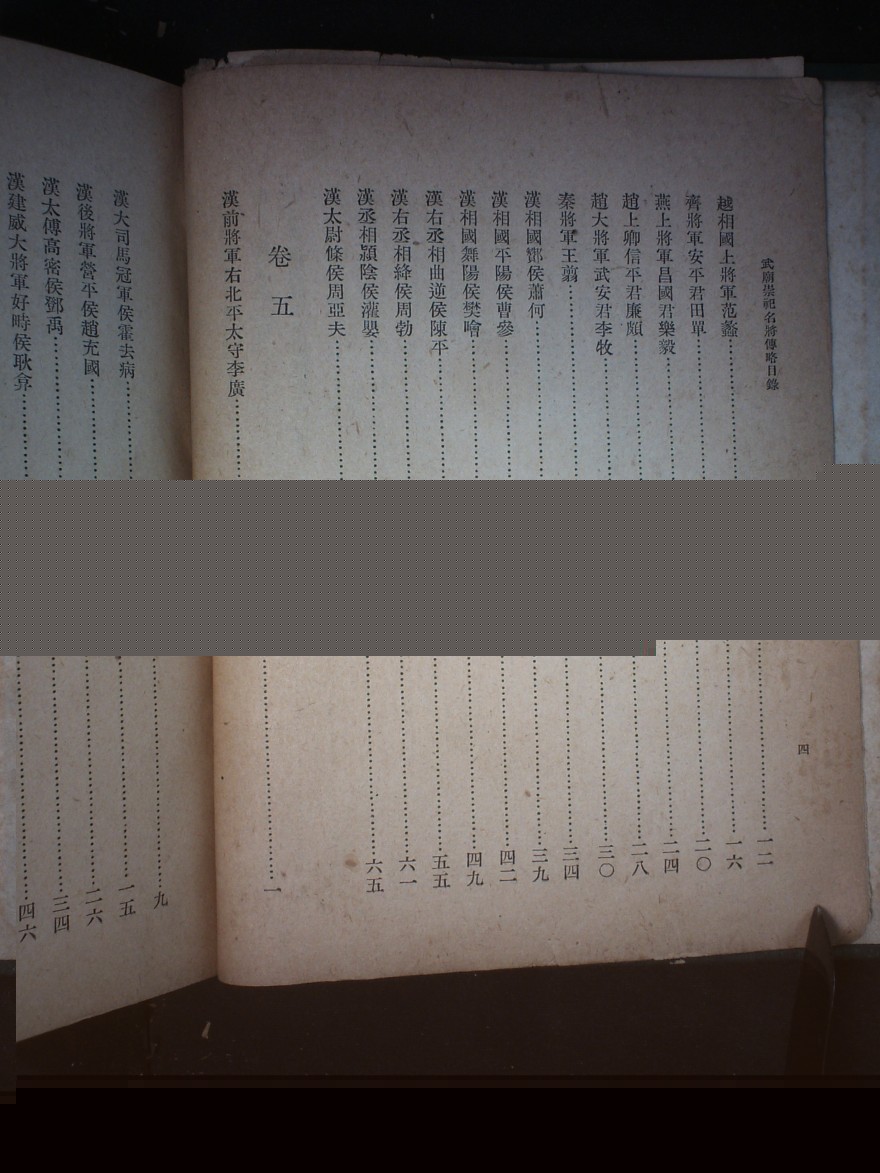 武廟崇祀名將傳略目錄
四
越相國上將軍范蠡 一二
齊將軍安平君田單 一六
燕上將軍昌國君樂毅 二〇
趙上卿信平君廉頗 二四
趙大將軍武安君李牧 二八
秦將軍王翦 三〇
漢相國酇侯蕭何 三四
漢相國平陽侯曹參 三九
漢相國舞陽侯樊噲 四二
漢右丞相曲逆侯陳平 四九
漢右丞相絳侯周勃 五五
漢丞相潁陰侯灌嬰 六一
漢太尉條侯周亞夫 六五
卷五
漢前將軍右北平太守李廣 一
漢大司馬冠軍侯霍去病 九
漢後將軍營平侯趙充國 一五
漢太傅高密侯鄧禹 二六
漢建威大將軍好畤侯耿弇 三四
四六